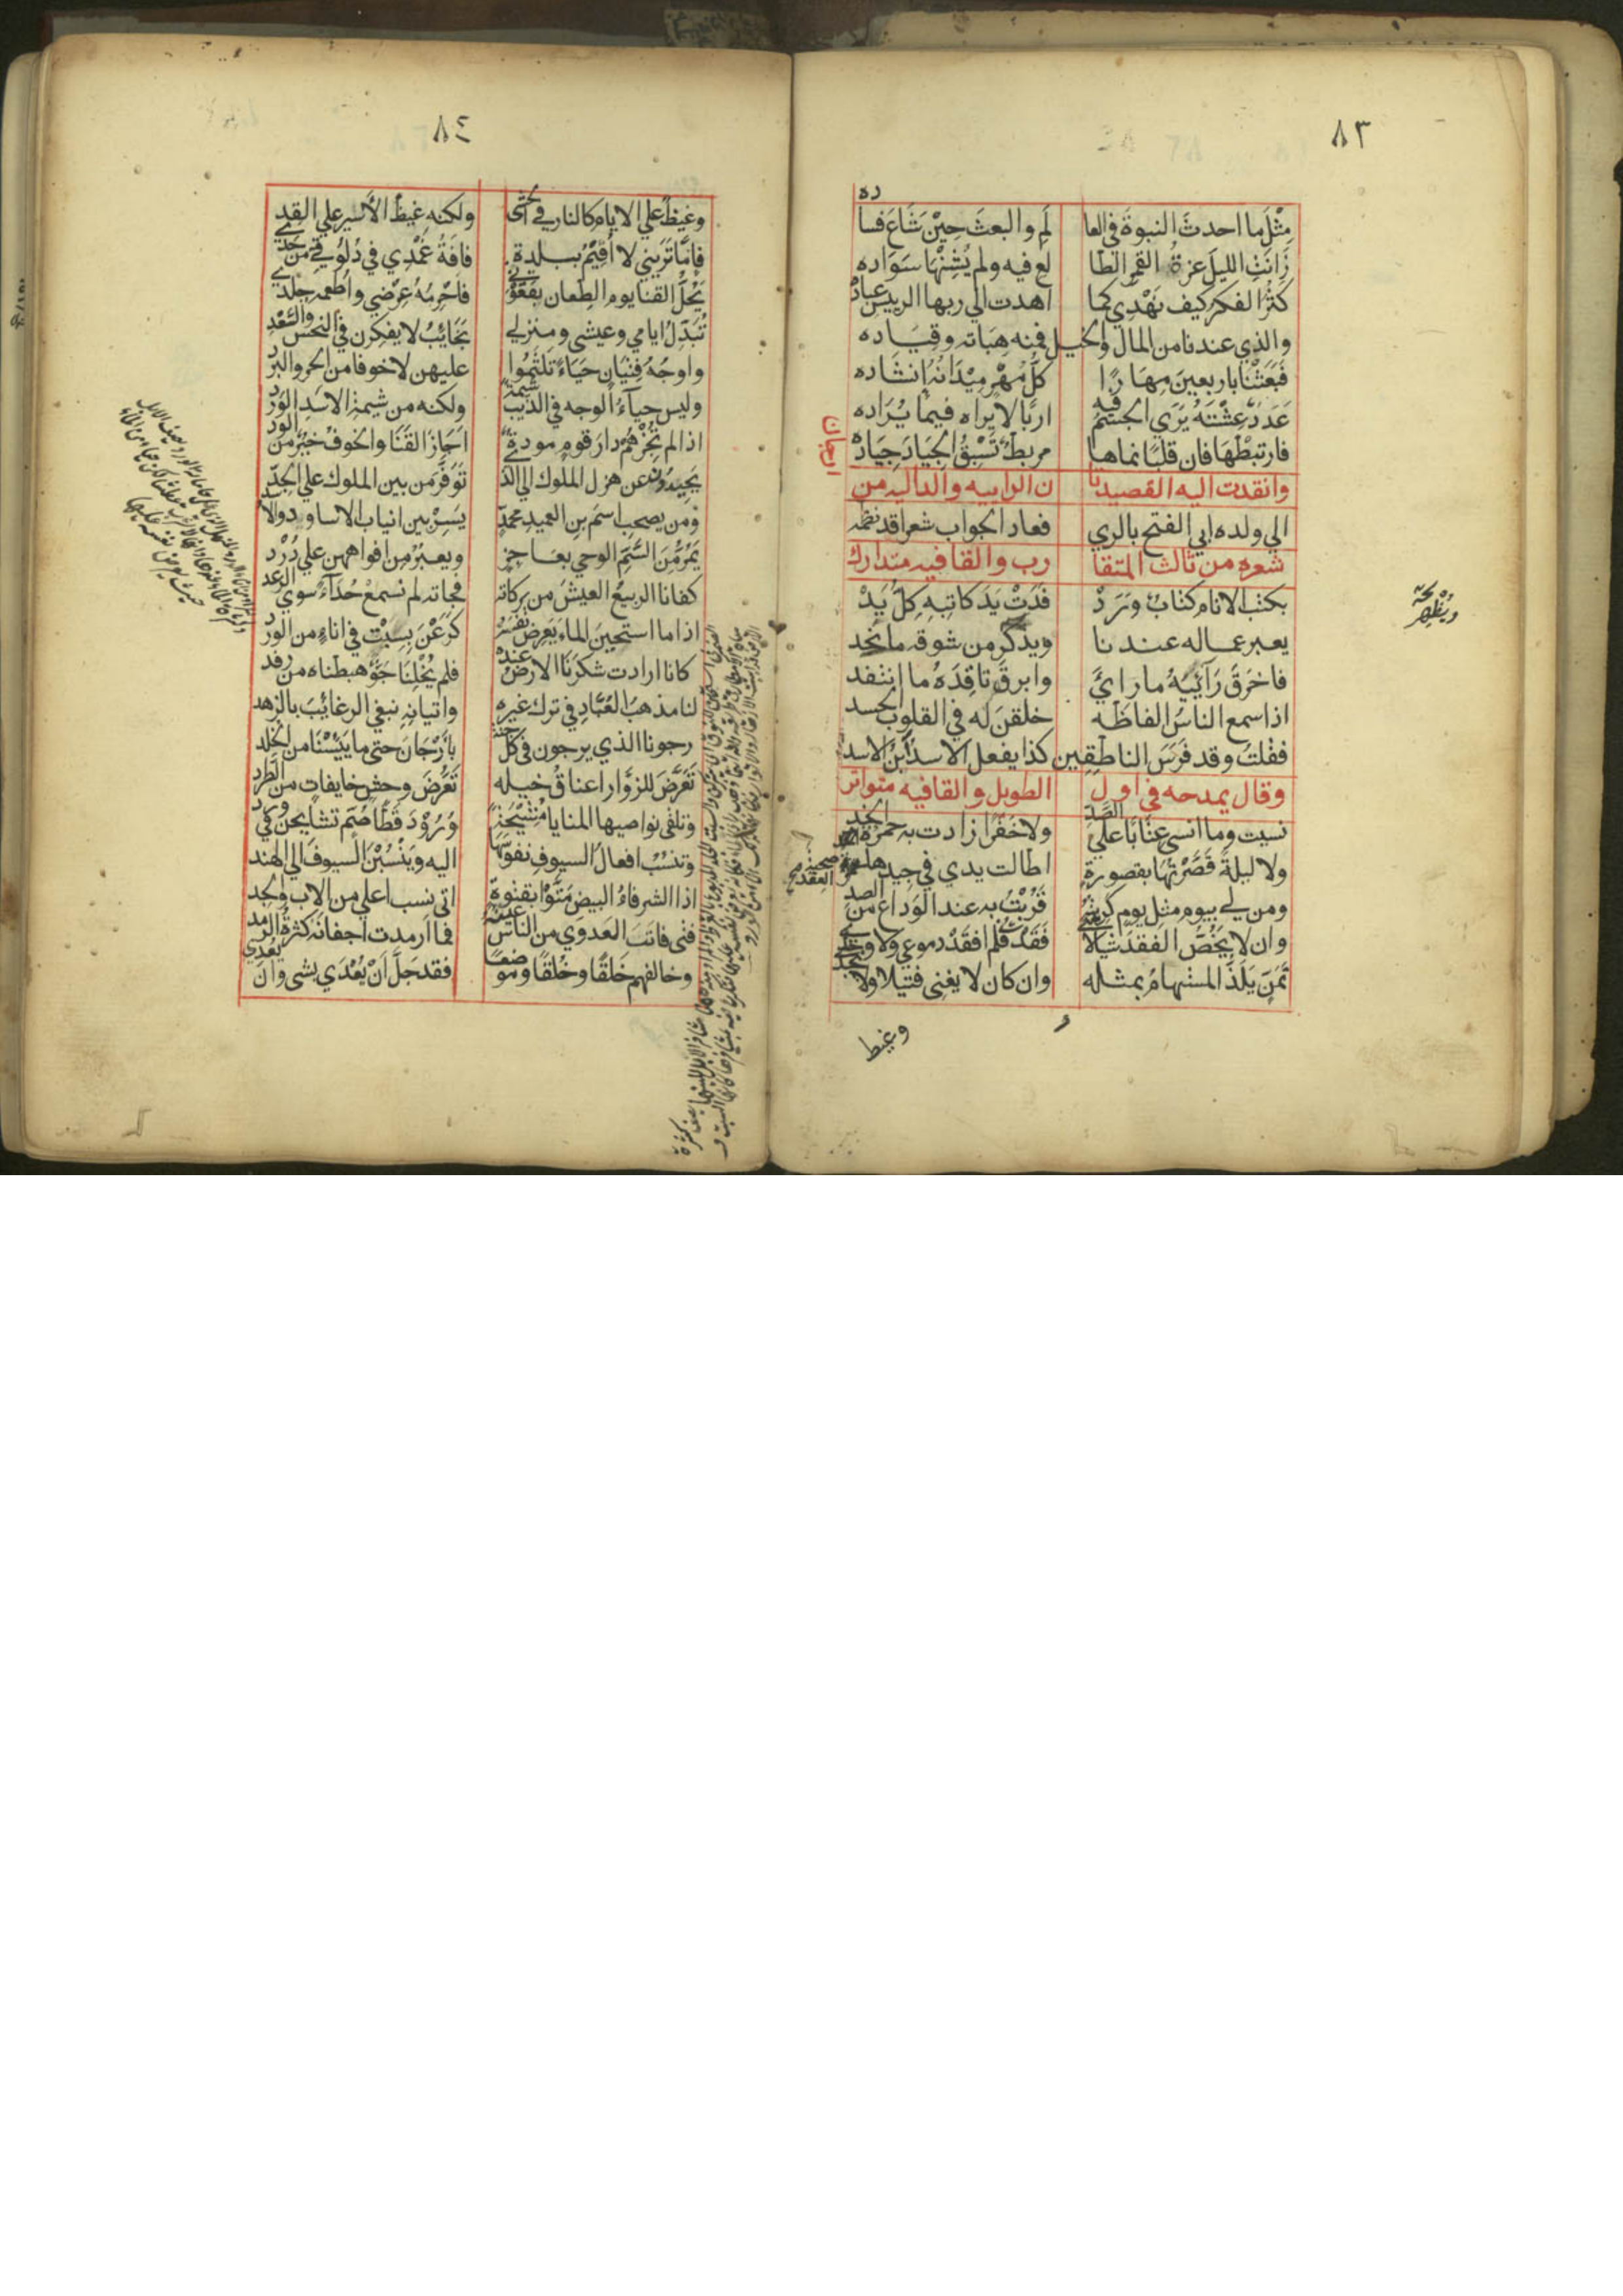 ٨٣
ده
مِثْلَ ما احدثَ النبوةَ في العا لَمِ والبعثَ حِيْنَ شَاعَ فسا
زَانَتِ الليلَ غرةُ القمرِ الطا لعِ فيه ولم يُشِنْهَا سَوَاده
كثُرَ الفكر كيف نَهْدِي كما اهدت الي ربها الرييس عبادُه
والذي عندنا من المال والخيل فمنه هِبَاته وقِيَاده
فبَعَثْنا باربعينَ مِهَارًا كلُّ مُهْرٍ مِيْدَانُهُ اِنشَاده
عَدَدٌ عِشْتَهُ يَرَي الجسْمُ فيه اربًا لا يراه فيما يُزَاده
فارتبِطْهَا فان قلبًا نماها مربطٌ تَسْبِقُ الجيَادَ جيَادُه
وانفذت اليه القصيدتا ن الراييه والداليه من ارجان
الي ولده ابي الفتح بالري فعاد الجواب شعرا قد نظمه
شعره من ثالث المتقا رب والقافيه متدارك
بكتب الانام كتابٌ وَرَدْ فَدَتْ يَدَ كاتبِهِ كلُّ يَدْ
يعبر عماله عندنا ويذكر من شوقه ما نجد
فاخرَقَ رَآئِيَهُ ما رايَ وابرقَ ناقِدَهُ ما انتقد
اذا سمع الناسُ الفاظَه خلقنَ له في القلوب الحسد
فقلتُ وقد فَرَسَ الناطِقِين كذا يفعل الاسدُ ابنُ الاسد
وقال يمدحه في اول الطويل والقافيه متواتر
نسيت وما انسي عتابًا علي الصَّدِ ولا خَفَرًا زادت به حمرة الخد
ولا ليلةً قَصَّرْتُهَا بقصورةٍ اطالت يدي في جيدها صحبة العقد
ومن لي بيوم مثل يوم كرهته قَرُبْتُ به عند الوَداع من البعد
وان لا يَخُصَّ الفقدُ شيًا لاَنني فَقَدتُ فلم افقدْ دموعي ولا وجدي
تَمَنٍّ يَلَذُّ المستهامُ بمثله وان كان لا يغني فتيلا ولا يجدي
وغيظ
٨٤
وغيظٌ علي الايام كالنار في الحشي ولكنه غيظُ الأسير علي القد
فإمّا تَرَيني لا أُقِيْمُ ببلدة فافَةُ غمْدِي في دُلُوقي من حَدي
يَحُلُّ القنا يوم الطعان بعَقْوَتي فاَحْرِمُهُ عِرْضي واُطْعمه جلدي
تُبَدِّلُ ايامي وعيشي ومنزلي نجَايِبُ لا يفكرن في النحس والسَّعْدِ
واوجُهُ فِتْيَانٍ حَيَاءً تَلَثَّمُوا عليهن لا خوفا من الحر والبرد
وليس حياءُ الوجه في الذيب شيمةً ولكنه من شيمة الاسَدِ الوَرْد
اذا لم تُجِزْهُمْ دارَ قومٍ مودةٌ اَجَازَ القَنَا والخوفُ خيْرٌ من الود
يَحِيدُونَ عن هزل الملوك الي الذي تَوَفَّرَ من بين الملوك علي الجِدِّ
ومن يصحب اسمَ بنِ العميدِ محمدٍ يَسِرْ بين انياب الاساود والاسد
يَمُرُّ مِنَ السَّمِّ الوحي بعاجزٍ ويعبُرُ من افواههن علي دُرْد
كفانا الربيعُ العيسَ من بركاته فجاته لم تسمعْ حُدَآءً سوي الرعد
اذا ما استحين الماءَ يَعرِض نَفسَهُ كَرَعْنَ بِسِبْتٍ في اناءٍ من الوَرْد
كانا ارادت شكرَنَا الارضُ عنده فلم يُخْلِنَا جَوٌّ هبطناه من رفد
لنا مذهبُ العُبَّادِ في ترك غيره واتيانِهِ نبغي الرغائبَ بالزهد
رجونا الذي يرجون في كل جنة بأرَّجَانَ حتي ما يَئِسْنَا من الخلد
تَعَرَّضَ للزوَّار اعناقُ خيله تَعَرُّضَ وحشٍ خايفاتٍ من الطَّرد
وتلقي نواصيها المنايا مُشِيْحَةً وُرُوْدَ قَطًا صُمٍّ تشايحن في وِرد
وتنسُبُ افعالُ السيوفِ نفوسَهَا اليه ويَنْسُبْنَ السيوفَ الي الهند
اذا الشرفاءُ البيضُ مَتُّوا بقَتْوِهِ اتي نسب اعلي من الاب والجد
فتي فاتَتِ العَدْوَي من الناس عينُه فما ارمدت اجفانَه كثرةُ الرمد
وخالفهم خَلقًا وخُلقًا وموضعًا فقد جَلَّ اَنْ يُعْدَي بشي وان يُعْدِي